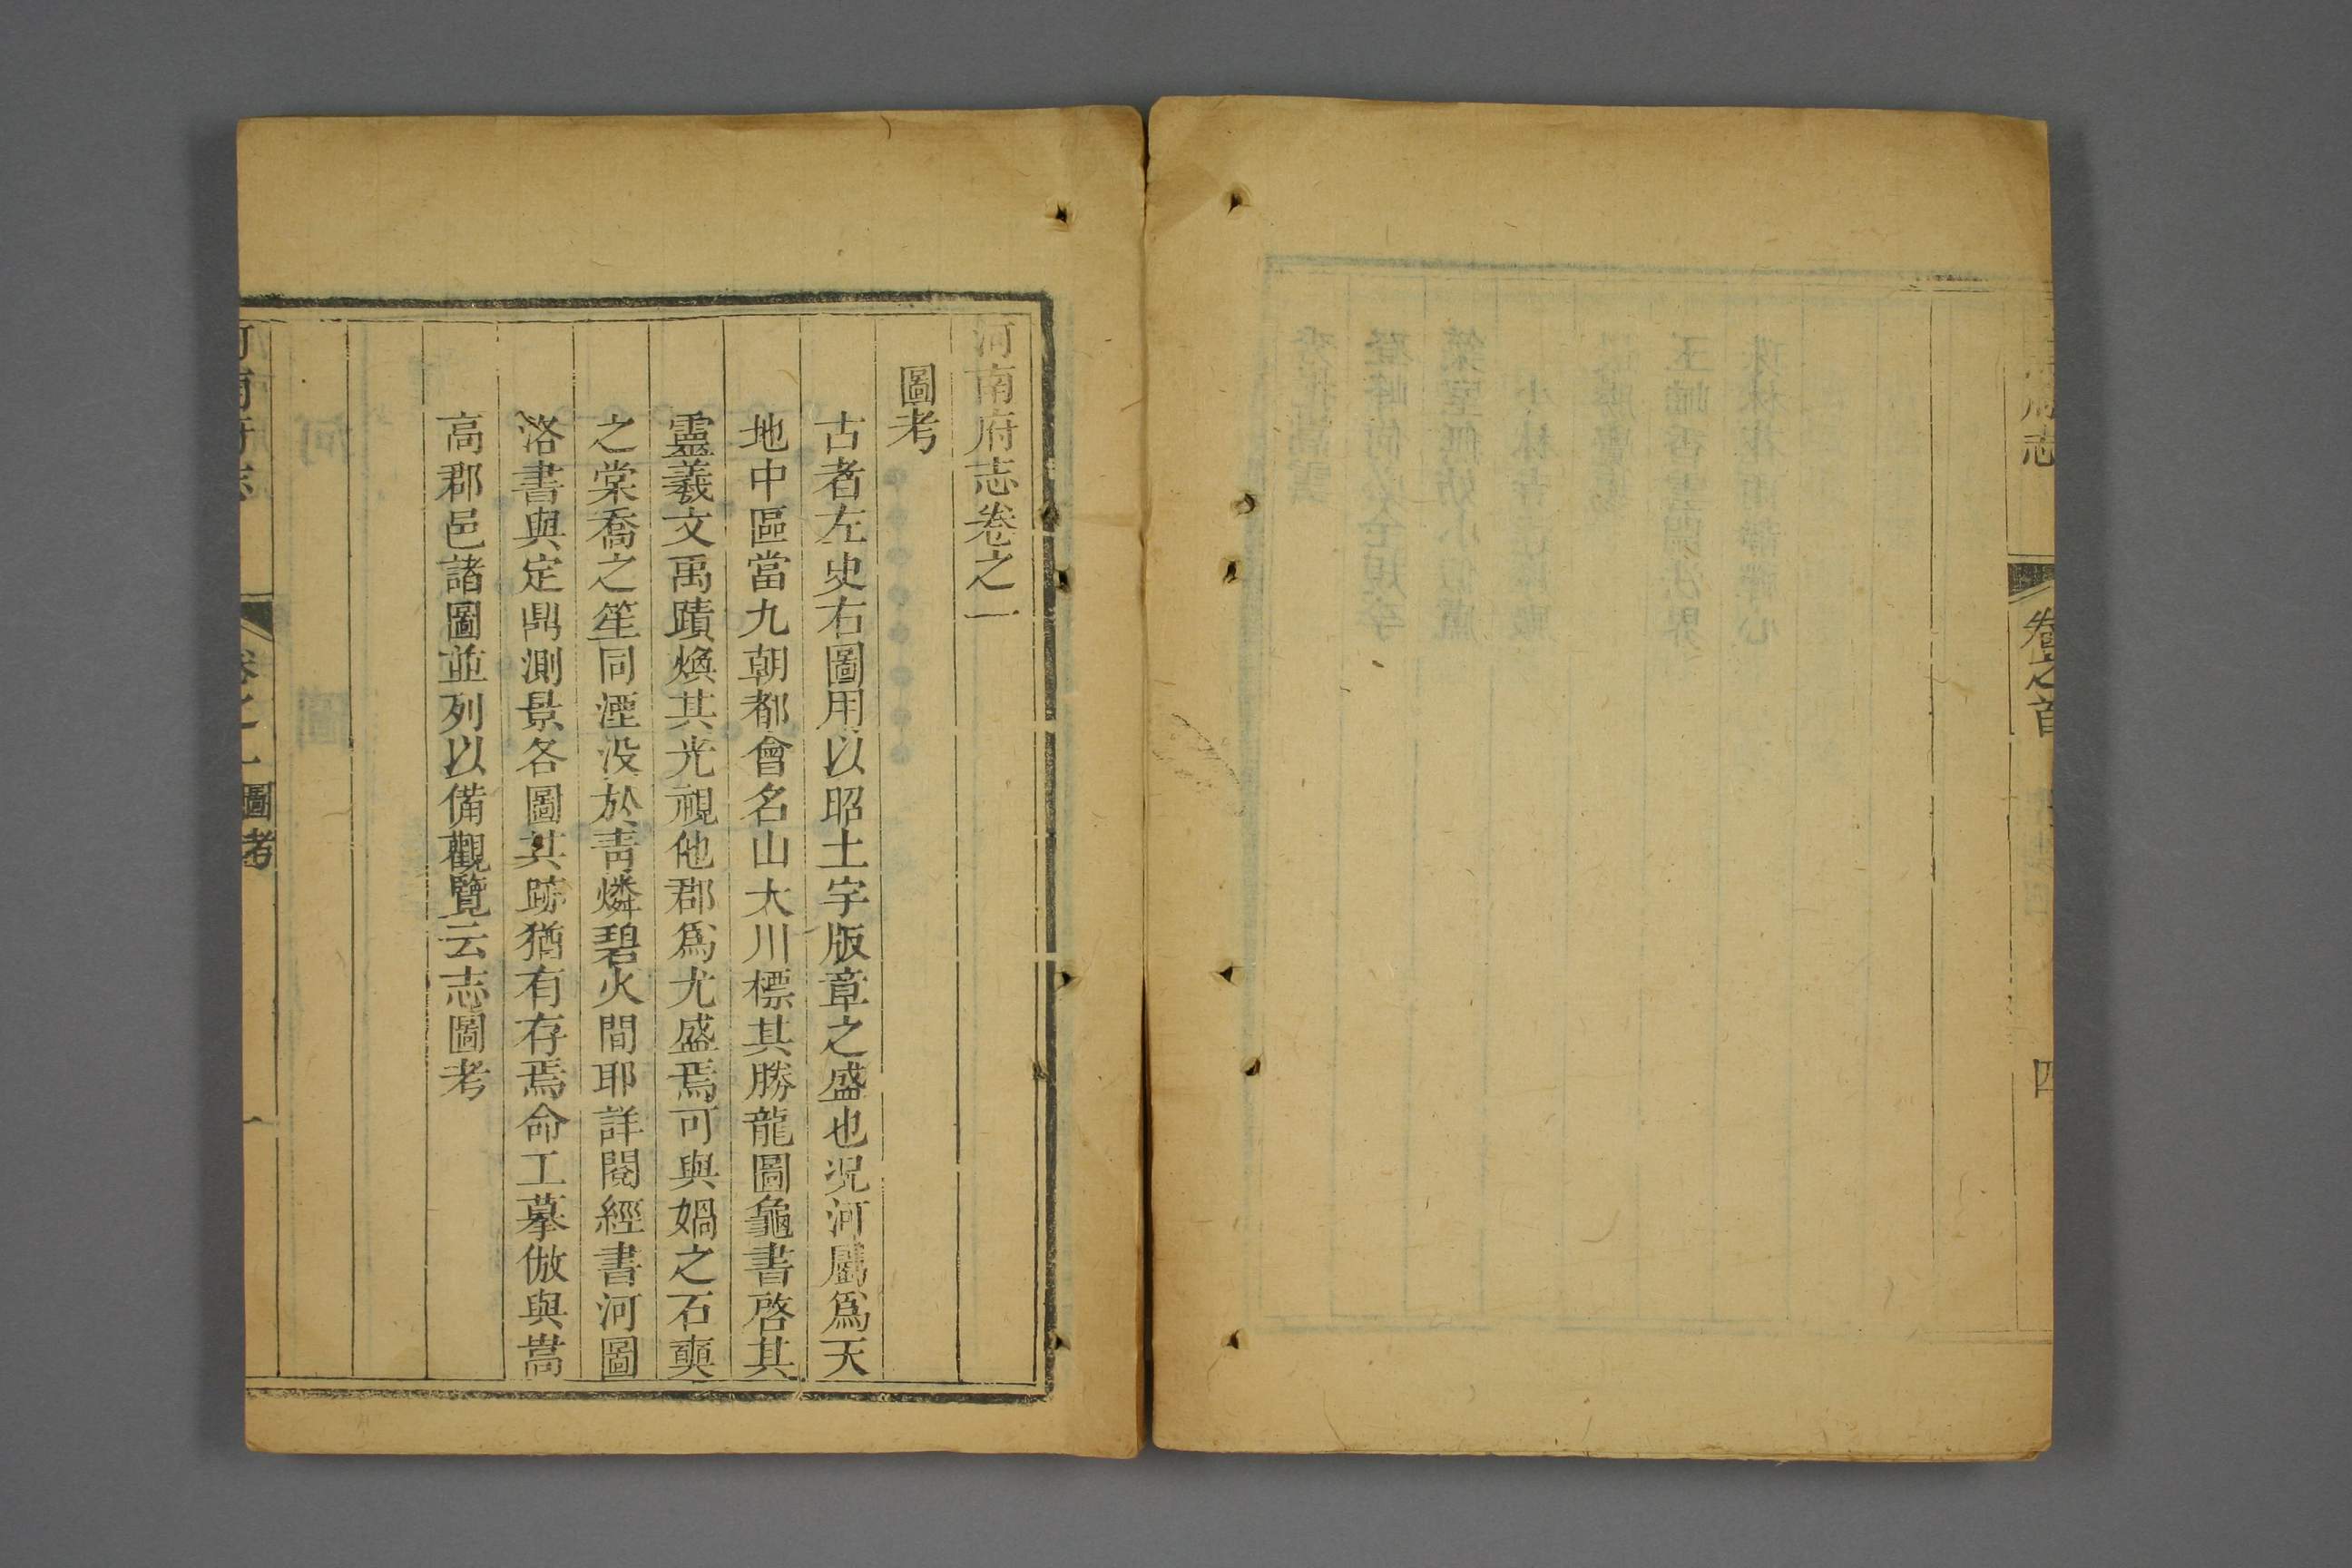 府志
卷之首
四
河南府志卷之一
圖考
古者左史右圖用以昭土宇版章之盛也况河㕔爲天
地中區當九朝都會名山大川標其勝龍圖龜書啓其
靈羲文禹蹟煥其光視他郡爲尤盛焉可與媧之石奭
之棠喬之笙同湮沒於靑燐碧火間耶詳閱經書河圖
洛書與定鼎測景各圖其跡猶有存焉命工摹倣與嵩
高郡邑諸圖並列以備觀覽云志圖考
河南府志
卷之一
圖考
一